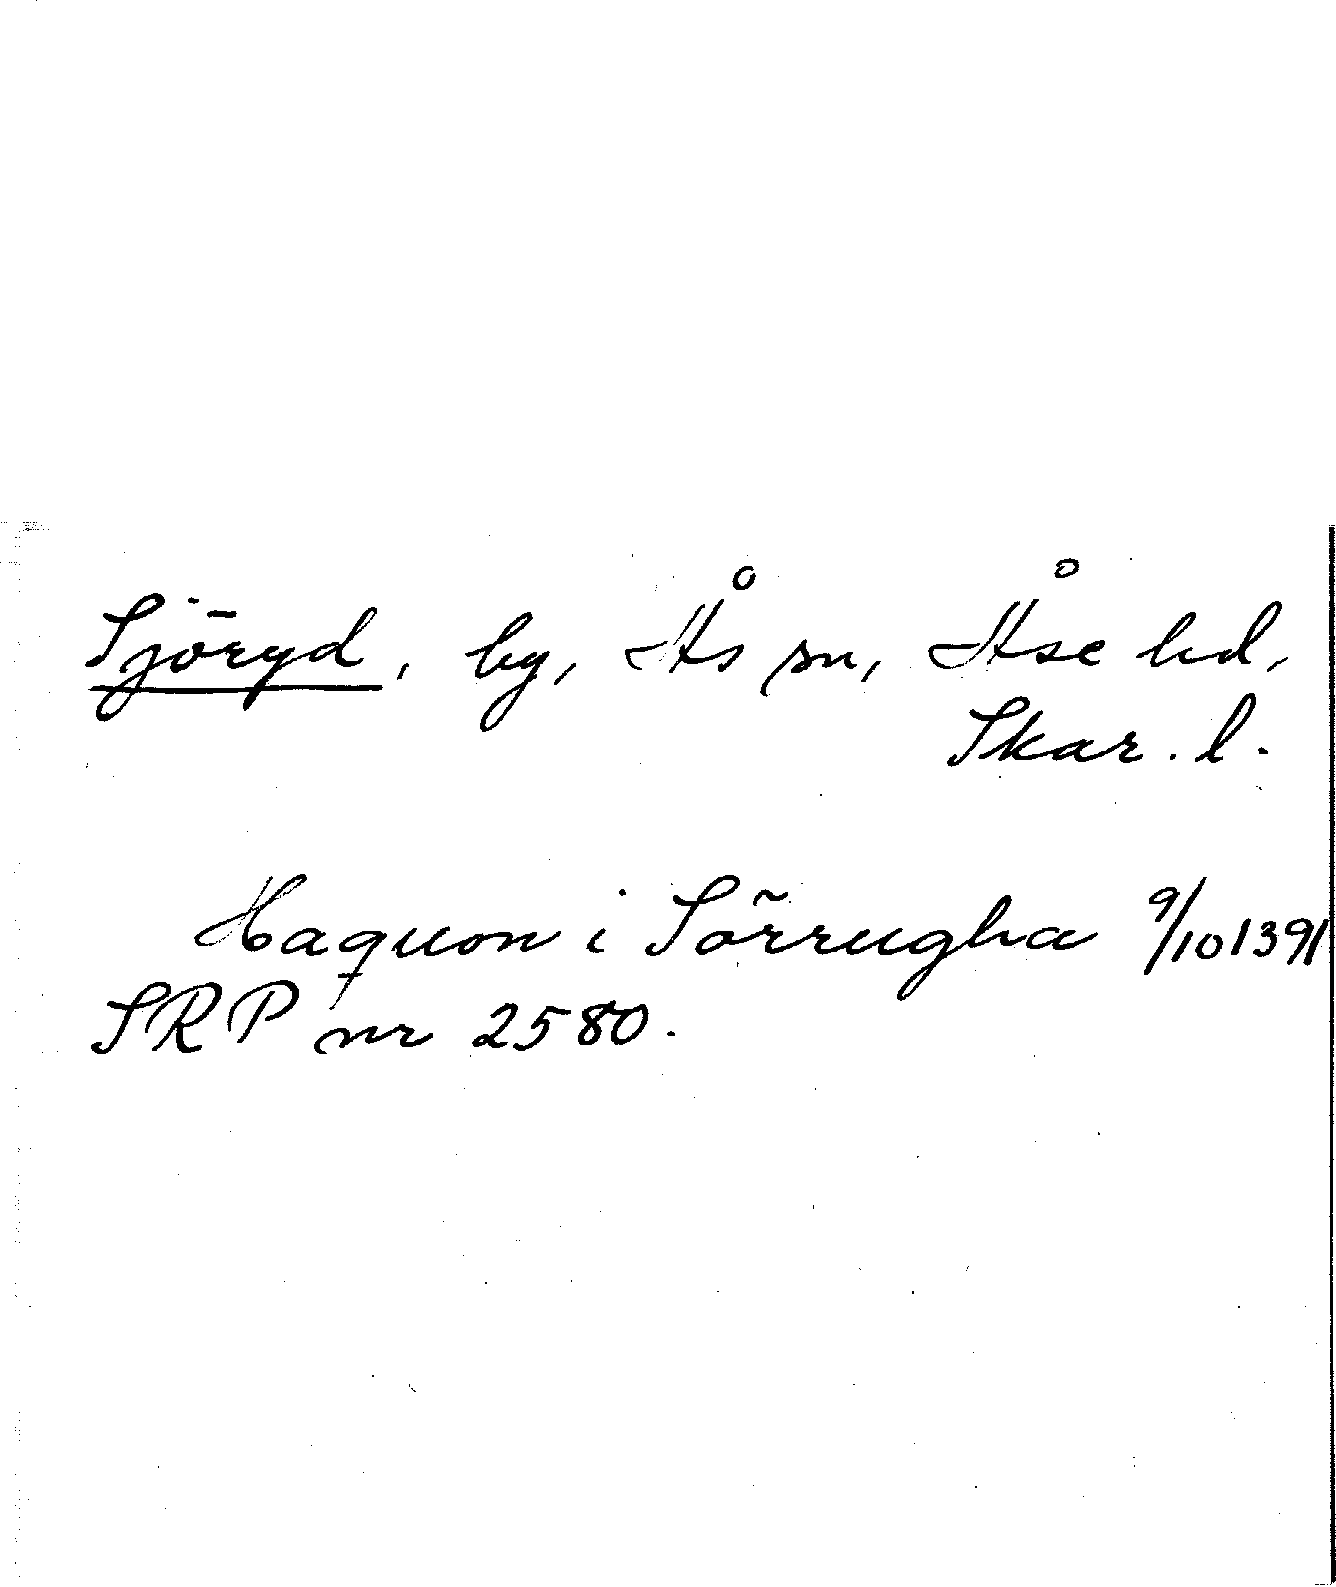 Sjöryd, by, Ås sn, Åse hd,
Skar. l.
Haquon i Sörrugha 9/10 1391
SRP nr 2580.